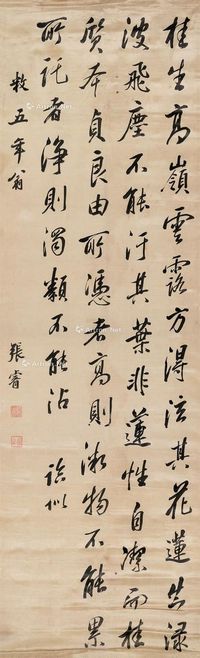 桂生高嶺雲露方得泫其花蓮出淥
波飛塵不能汙其葉非蓮性自潔而桂
質本貞良由所憑者高則微物不能累
所託者淨則濁類不能沾 臨似
五年翁
張睿